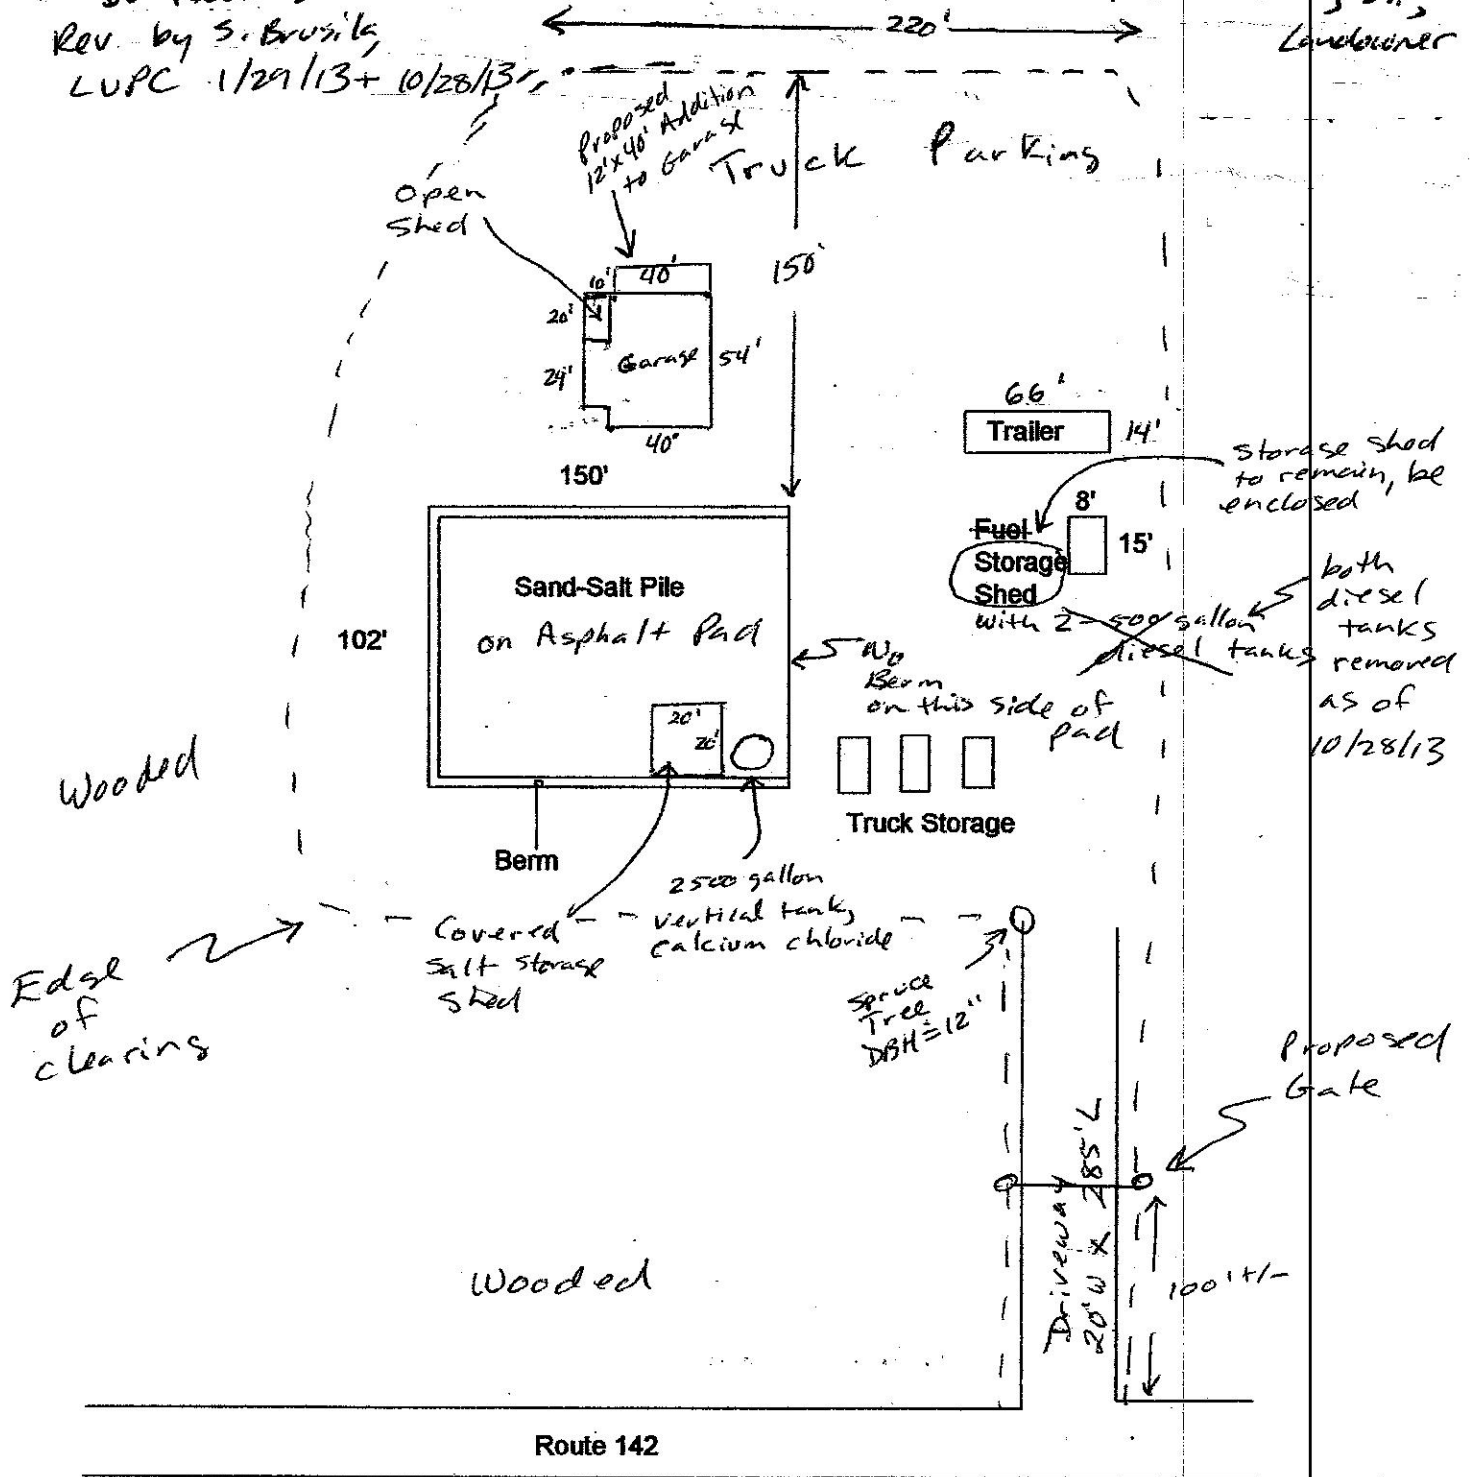 Rev. by S. Brusila,
LUPC 1/29/13 + 10/28/13
220'
Landowner
Proposed
12'x40' Addition
to Garage
Truck Parking
Open
Shed
150'
10'
40'
20'
24'
Garage
54'
40'
66'
Trailer
14'
Storage shed
to remain, be
enclosed
150'
8'
15'
Fuel
Storage
Shed
with 2-500 gallon
diesel tanks
both
diesel
tanks
removed
as of
10/28/13
Sand-Salt Pile
on Asphalt Pad
102'
No
Berm
on this side of
pad
20'
20'
Wooded
Truck Storage
Berm
2500 gallon
vertical tank,
calcium chloride
Covered
Salt Storage
Shed
Edge
of
clearing
Spruce
Tree
DBH=12"
Proposed
Gate
Driveway
20'W x 285'L
100'+/-
Wooded
Route 142